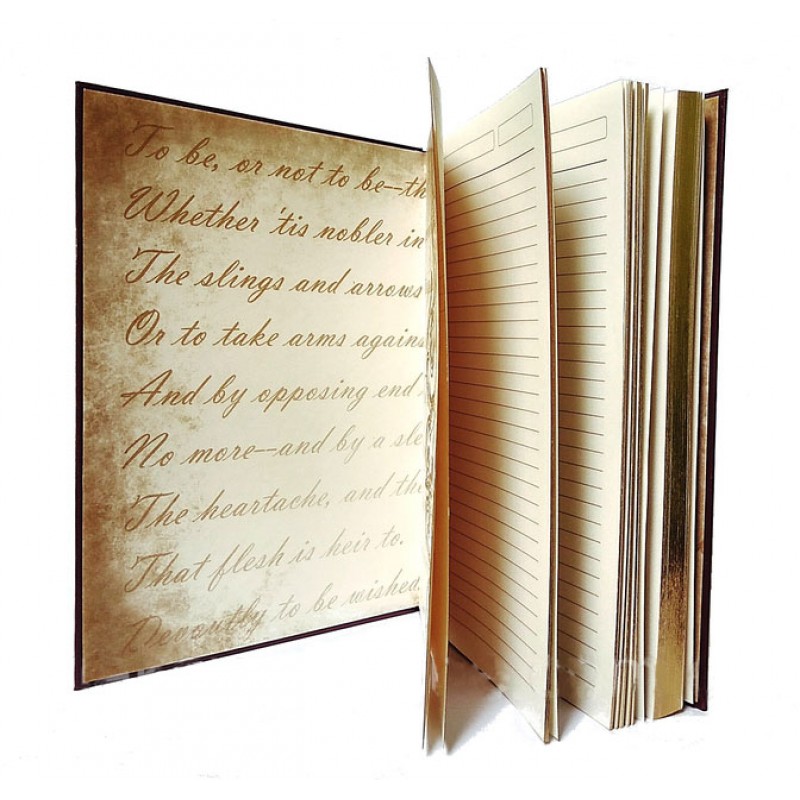 To be, or not to be—th
Whether 'tis nobler in
The slings and arrows
Or to take arms agains
And by opposing end
No more—and by a sle
The heartache, and the
That flesh is heir to.
Devoutly to be wished.